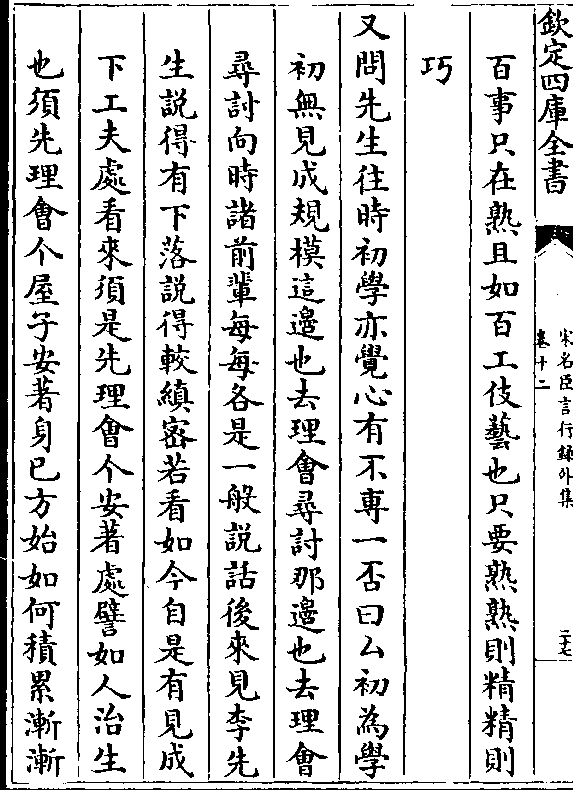 欽定四庫全書
宋名臣言行錄外集
卷十二
二十七
百事只在熟且如百工伎藝也只要熟熟則精精則
巧
又問先生往時初學亦覺心有不專一否曰厶初為學
初無見成規模這邉也去理會尋討那邉也去理會
尋討向時諸前輩每每各是一般說話後來見李先
生說得有下落說得較縝密若看如今自是有見成
下工夫處看來須是先理會个安著處譬如人治生
也須先理會个屋子安著身已方始如何積累漸漸